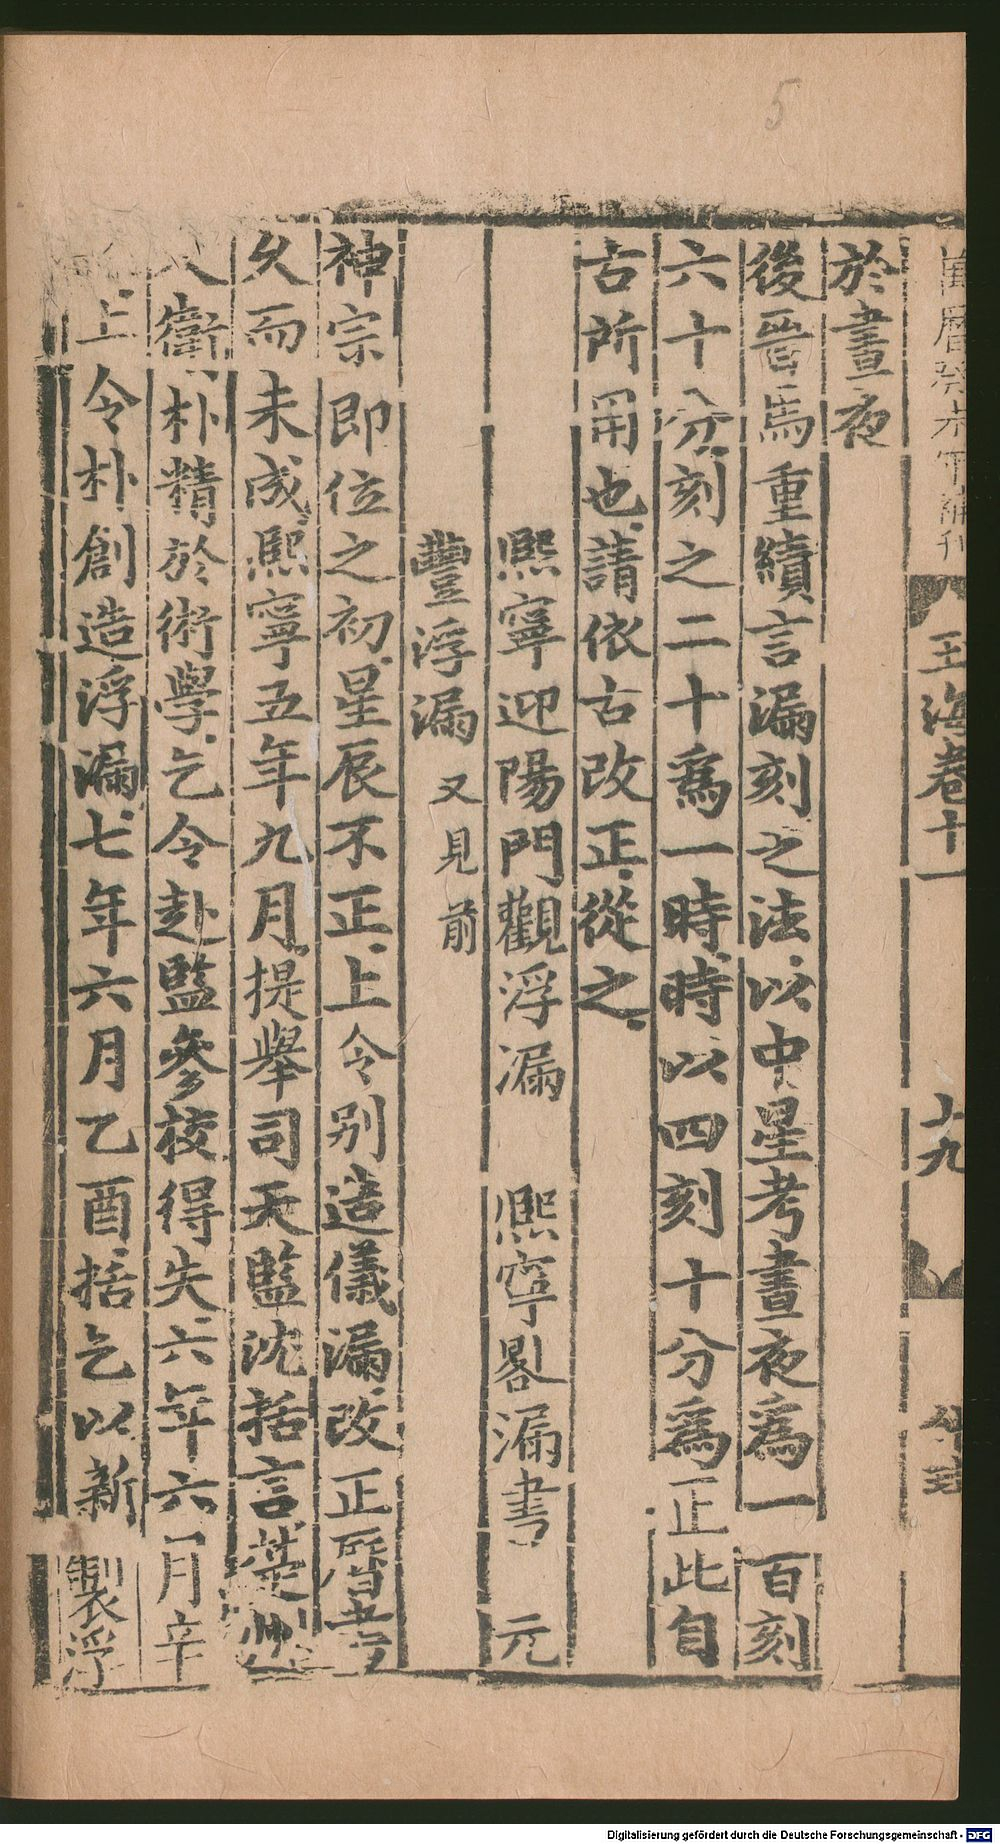 5
萬曆癸未年補刊
玉海卷十一
十九
於晝夜
後晉馬重績言漏刻之法以中星考晝夜爲一百刻
六十分刻之二十爲一時時以四刻十分爲正此自
古所用也請依古改正從之
熙寧迎陽門觀浮漏 熙寧晷漏書 元
豐浮漏 又見前
神宗即位之初星辰不正上令別造儀漏改正曆書
久而未成熙寧五年九月提舉司天監沈括言楚州
人衛朴精於術學乞令赴監參校得失六年六月辛
上令朴創造浮漏七年六月乙酉括乞以新製浮
Digitalisierung gefördert durch die Deutsche Forschungsgemeinschaft - DFG